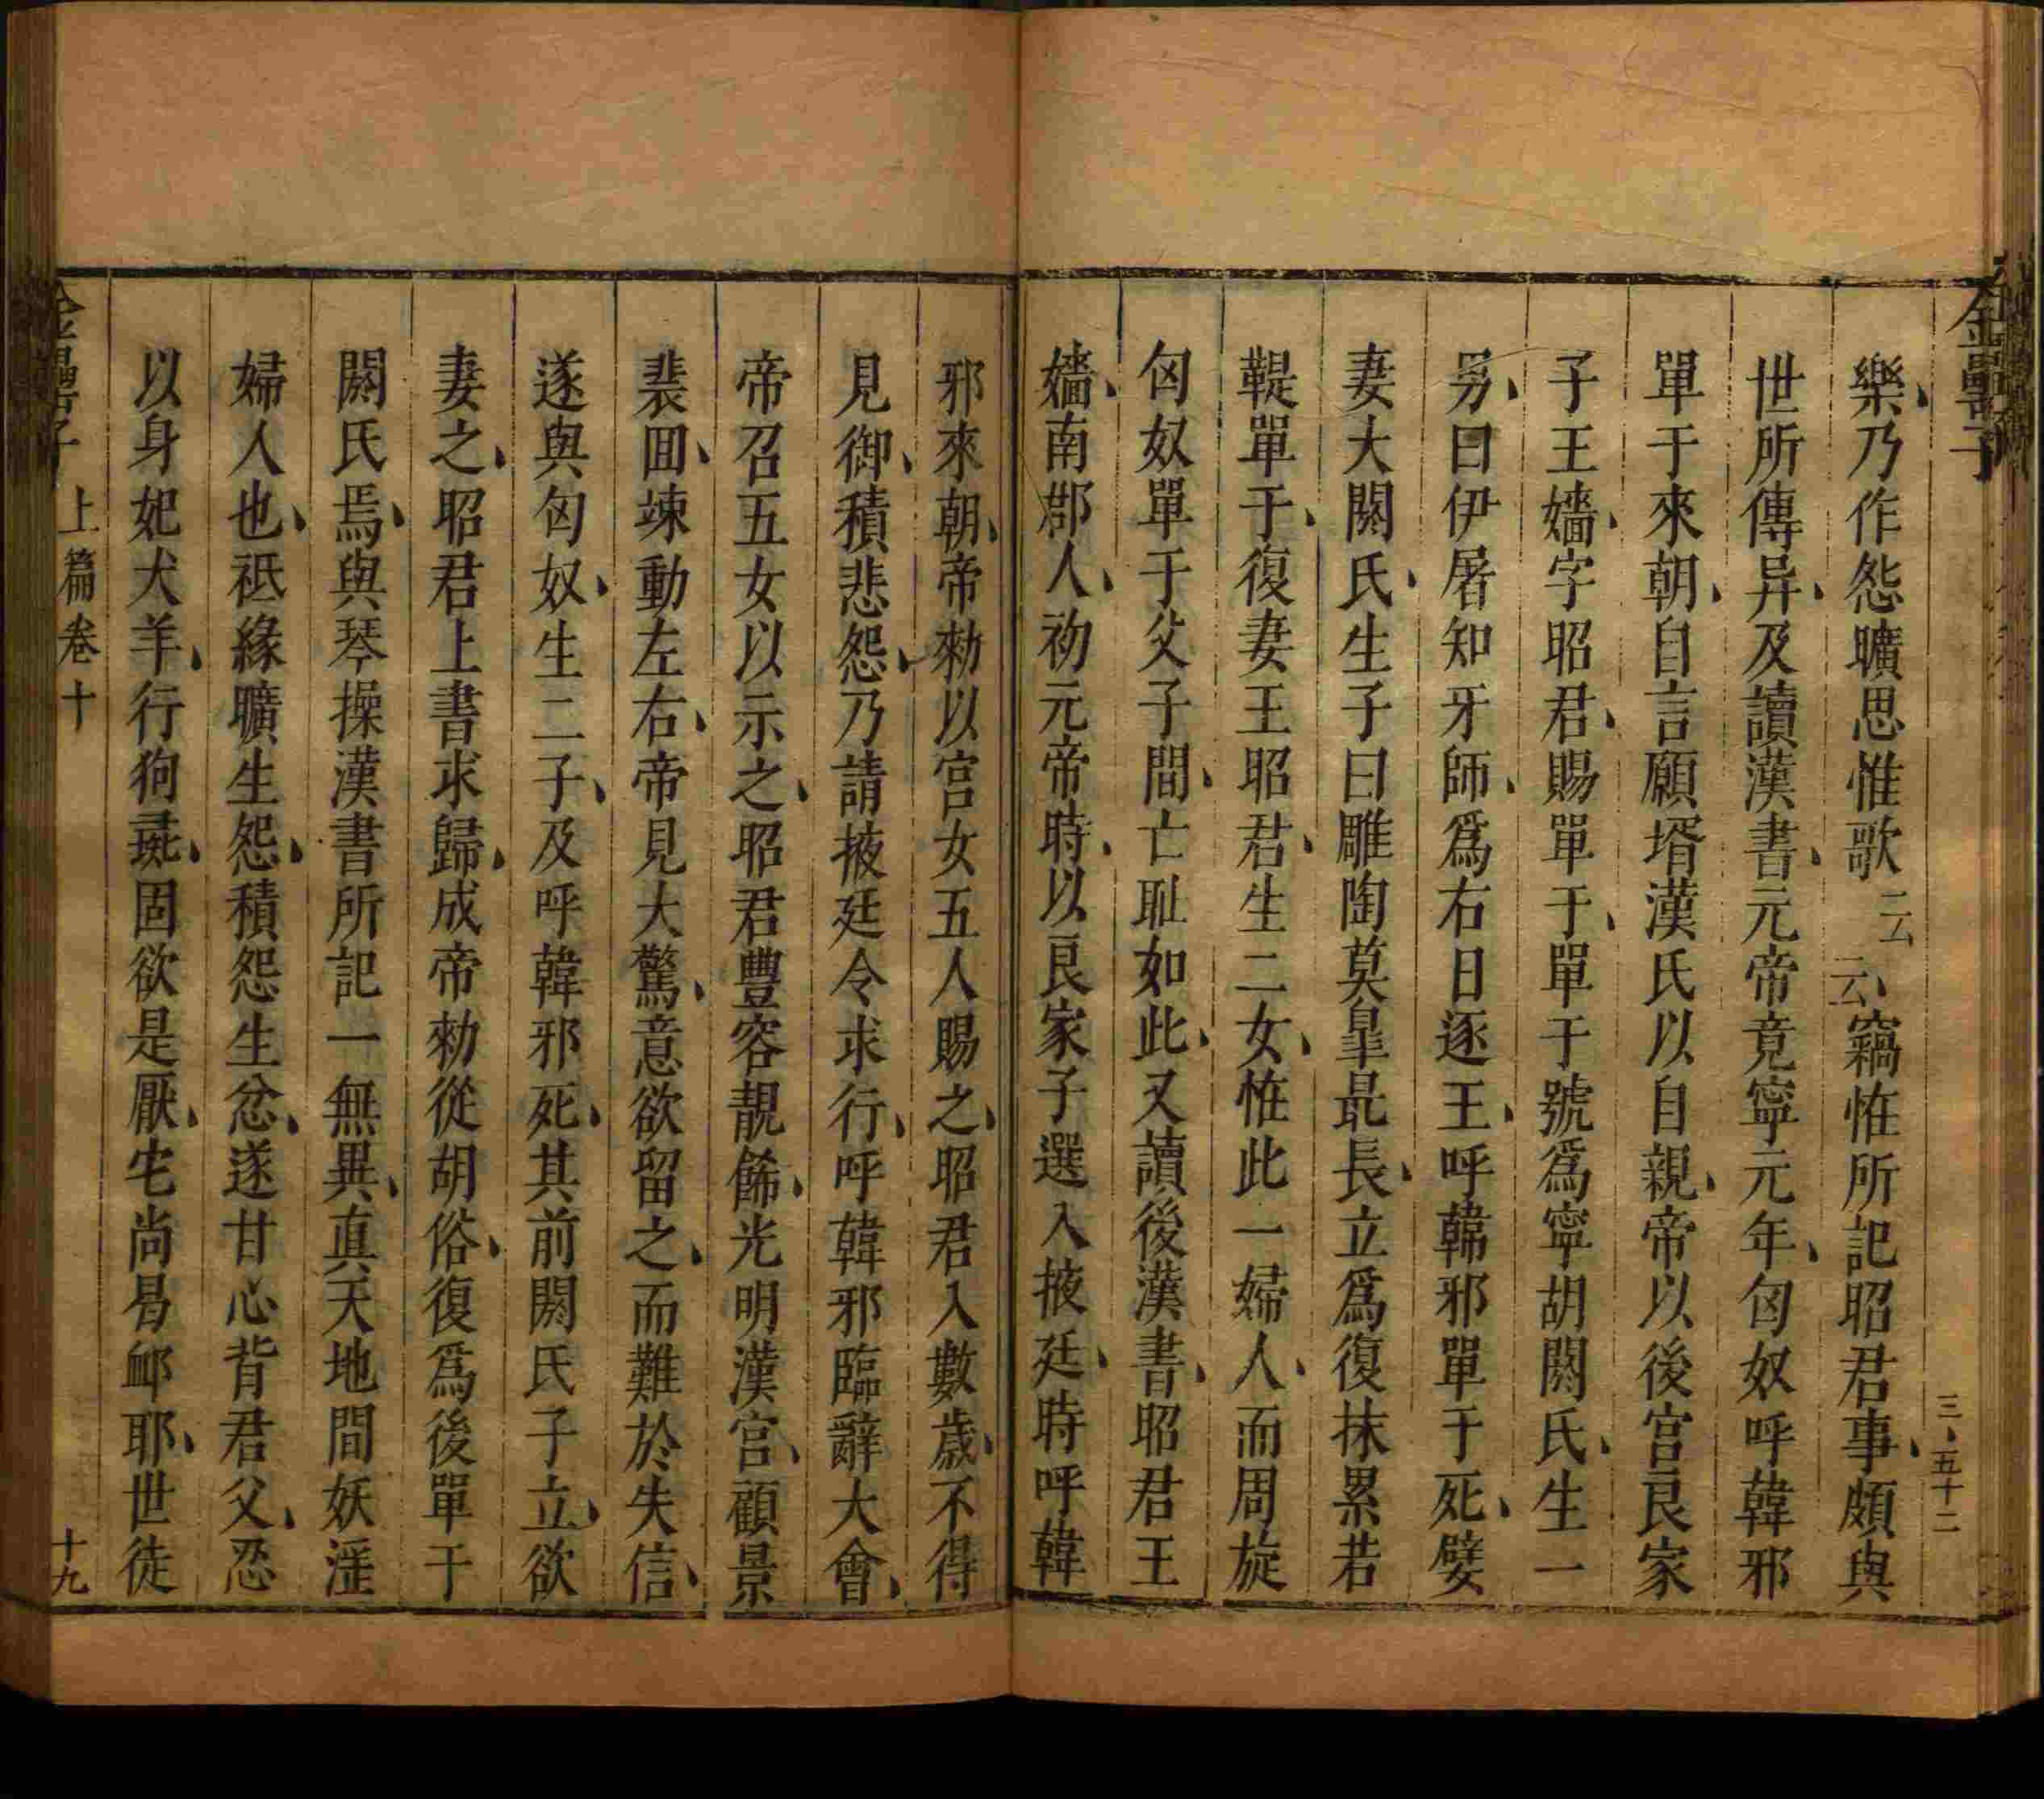 金罍子
三、五十二
樂、乃作怨曠思惟歌云云、竊恠所記昭君事、頗與
世所傳异、及讀漢書、元帝竟寧元年、匈奴呼韓邪
單于來朝、自言願壻漢氏以自親、帝以後宮良家
子王嬙、字昭君、賜單于、單于號爲寧胡閼氏、生一
男、曰伊屠知牙師、爲右日逐王、呼韓邪單于死、嬖
妻大閼氏、生子曰雕陶莫皐最長、立爲復抹累若
鞮單于、復妻王昭君、生二女、恠此一婦人、而周旋
匈奴單于父子間、亡耻如此、又讀後漢書、昭君王
嬙、南郡人、初元帝時、以良家子選入掖廷、時呼韓
邪來朝、帝勑以宮女五人賜之、昭君入數歲、不得
見御、積悲怨、乃請掖廷令求行、呼韓邪臨辭大會、
帝召五女以示之、昭君豐容靚餙、光明漢宮、顧景
裴囬、竦動左右、帝見大驚、意欲留之、而難於失信、
遂與匈奴、生二子、及呼韓邪死、其前閼氏子立、欲
妻之、昭君上書求歸、成帝勑從胡俗、復爲後單于
閼氏焉、與琴操漢書所記一無異、真天地間妖淫
婦人也、祗緣曠生怨、積怨生忿、遂甘心背君父、忍
以身妃犬羊、行狗彘、固欲是厭、宅尚曷䘏耶、世徒
金罍子
上篇卷十
十九